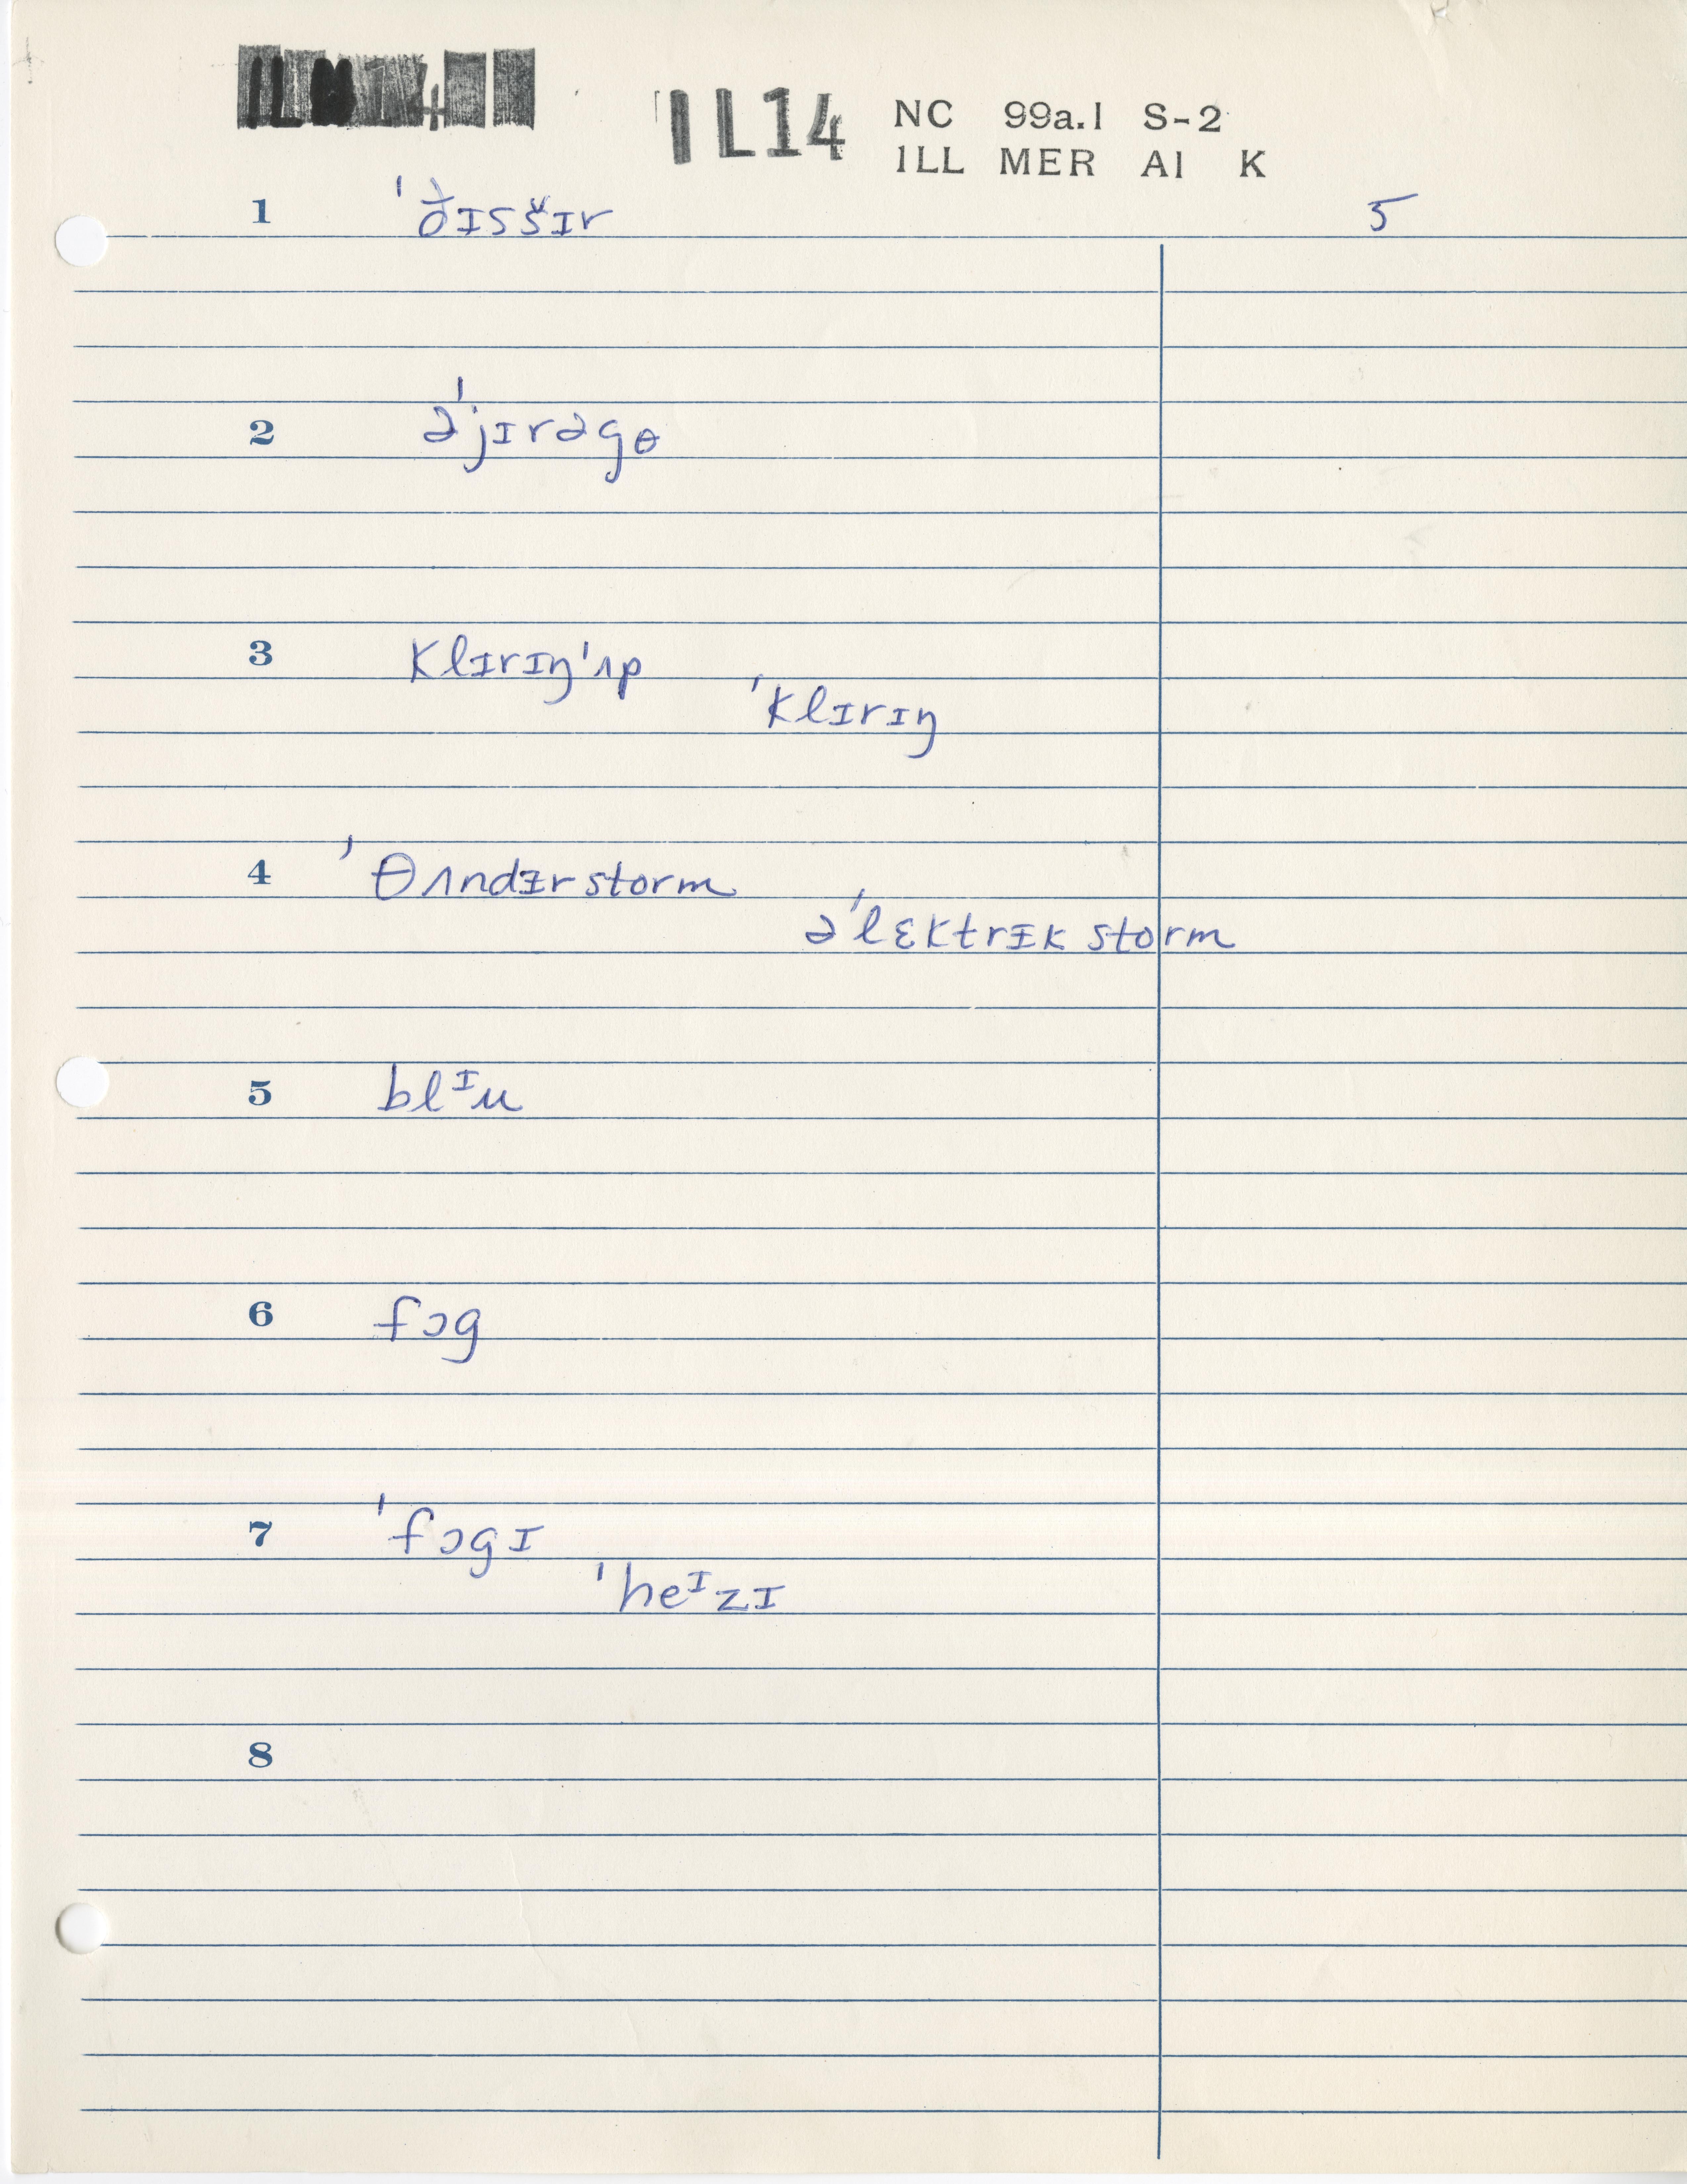 IL14 NC 99a.1 S-2
ILL MER A1 K
1 'ðɪsšɪr 5
2 ə'jɪrəgɵ
3 klɪrɪŋ'ʌp
'klɪrɪŋ
4 'θʌndᵻrstorm
ə'lɛktrᵻk storm
5 blᶦu
6 fɔg
7 'fɔgɪ
'heᶦzɪ
8